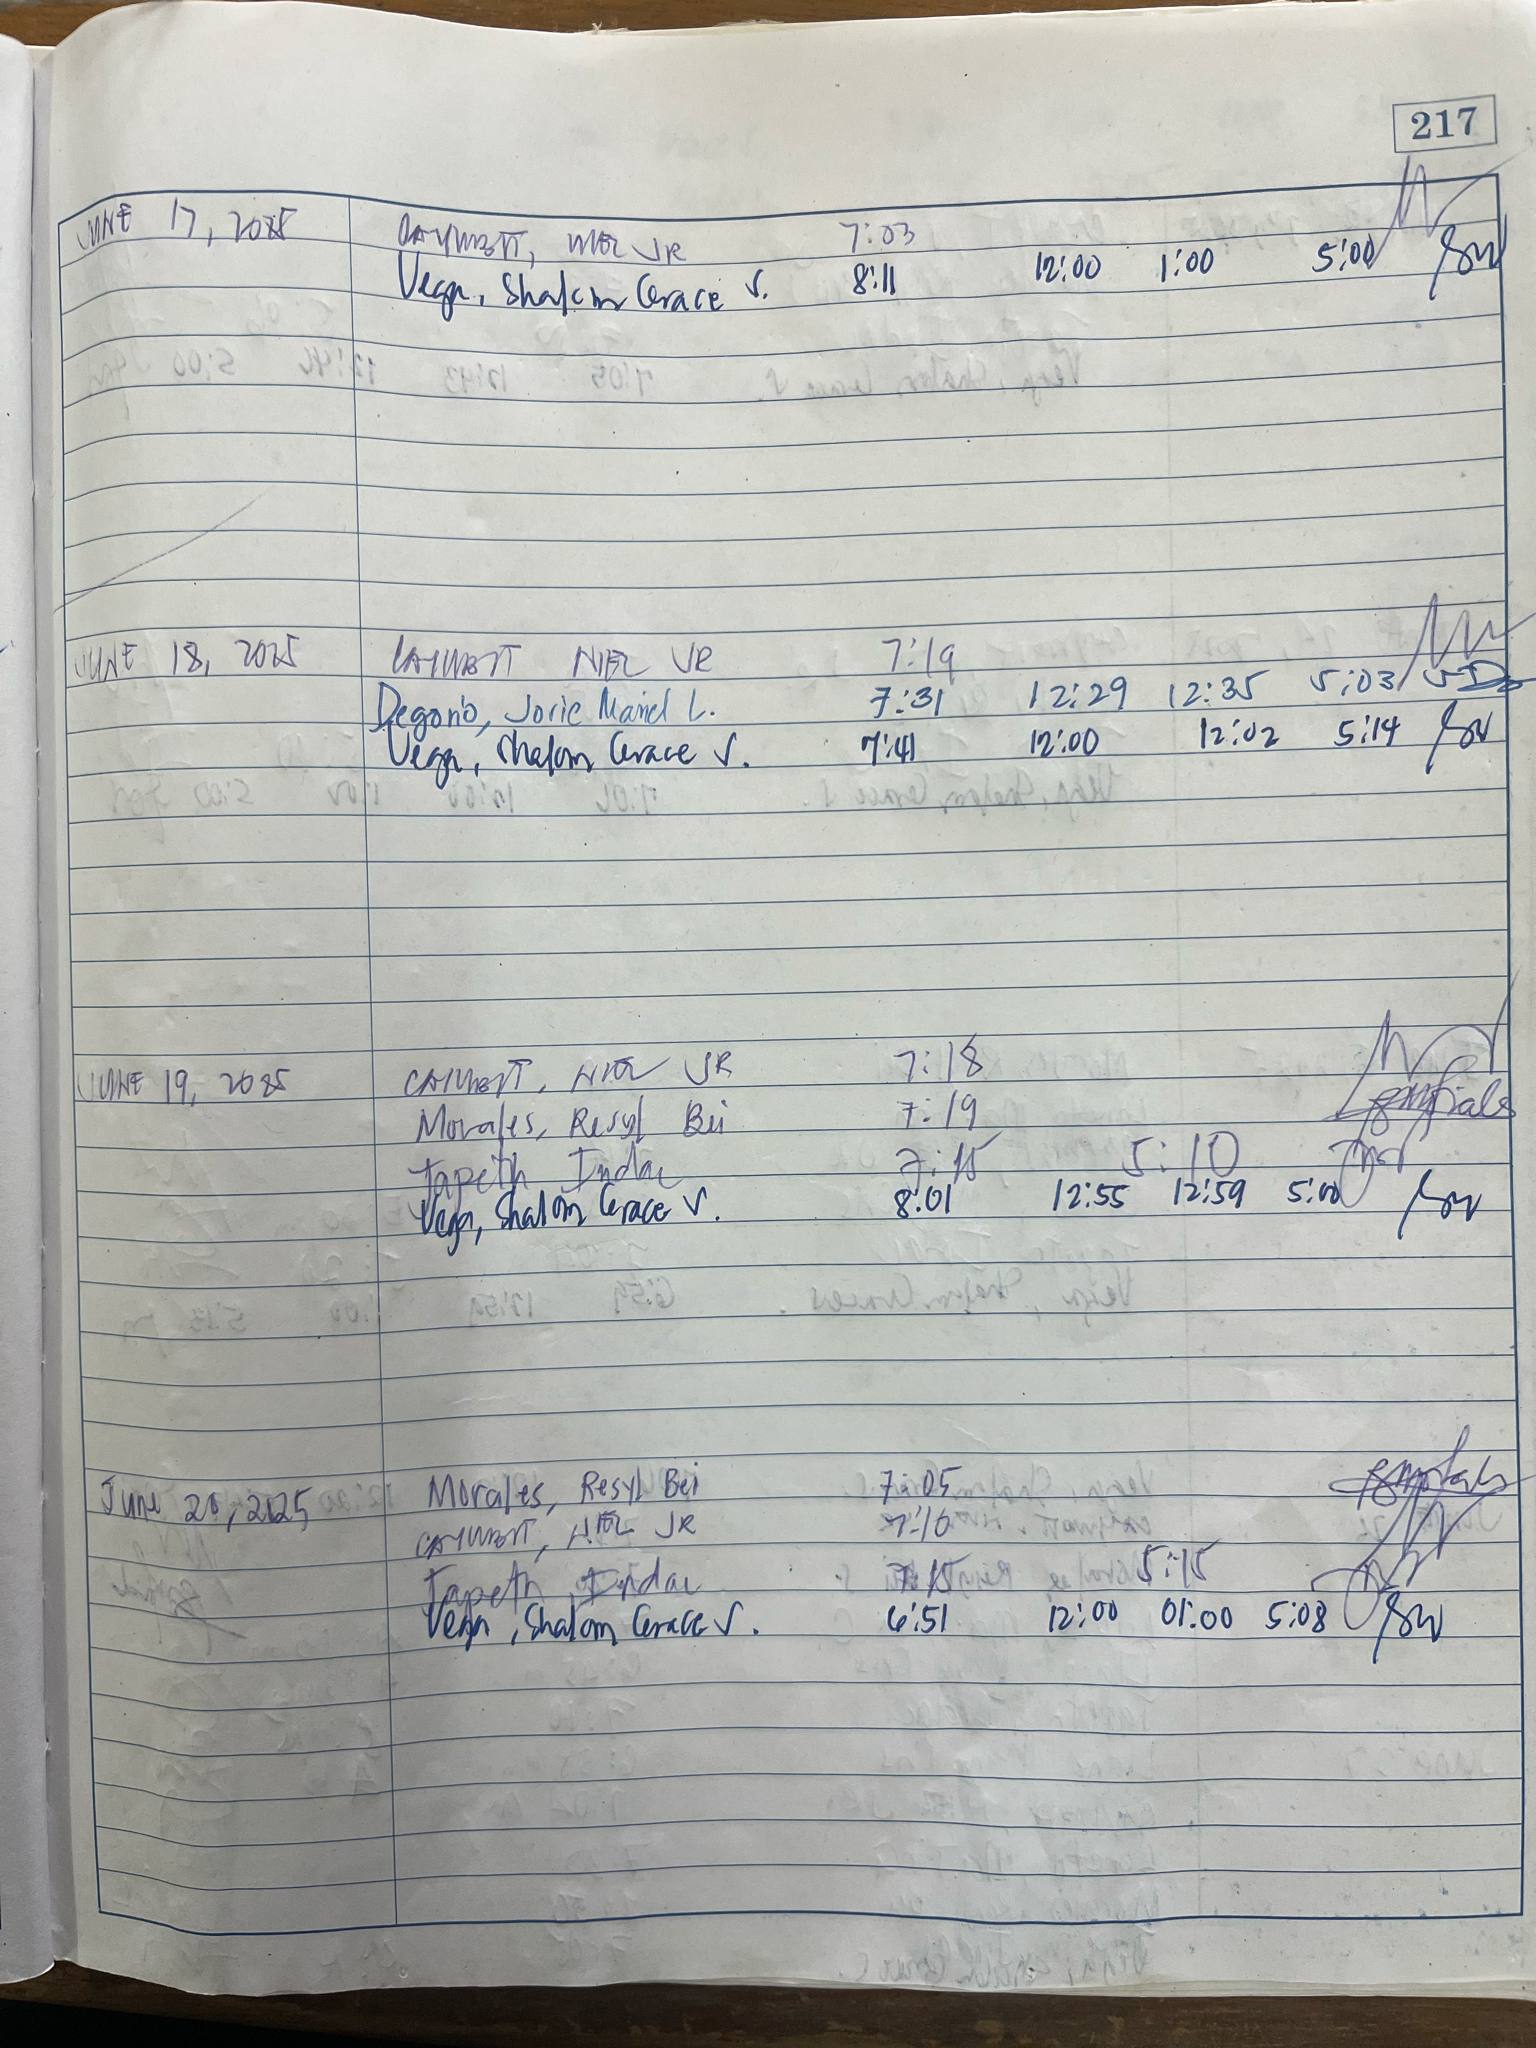 217
JUNE 17, 2025 CAYUBIT, NIEL JR 7:03
Vega, Shalom Grace S. 8:11 12:00 1:00 5:00
JUNE 18, 2025 CAYUBIT NIEL JR 7:19
Degorio, Joric Maniel L. 7:31 12:29 12:35 5:03
Vega, Shalom Grace S. 7:41 12:00 12:02 5:14
JUNE 19, 2025 CAYUBIT, NIEL JR 7:18
Morales, Resyl Bei 7:19
Japeth Indac 7:15 5:10
Vega, Shalom Grace S. 8:01 12:55 12:59 5:00
June 20, 2025 Morales, Resyl Bei 7:05
CAYUBIT, NIEL JR 7:10
Japeth Indac 7:15 5:15
Vega, Shalom Grace S. 6:51 12:00 01:00 5:08